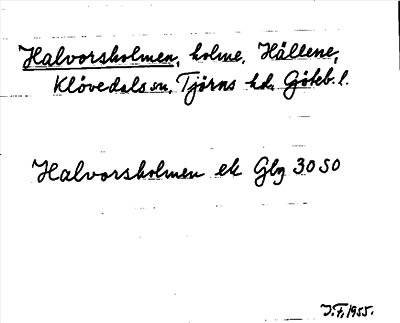 Halvorsholmen, holme, Hällene,
Klövedals sn, Tjörns hd, Göteb. l.
Halvorsholmen ek Glg 30 SO
J.F. 1955.